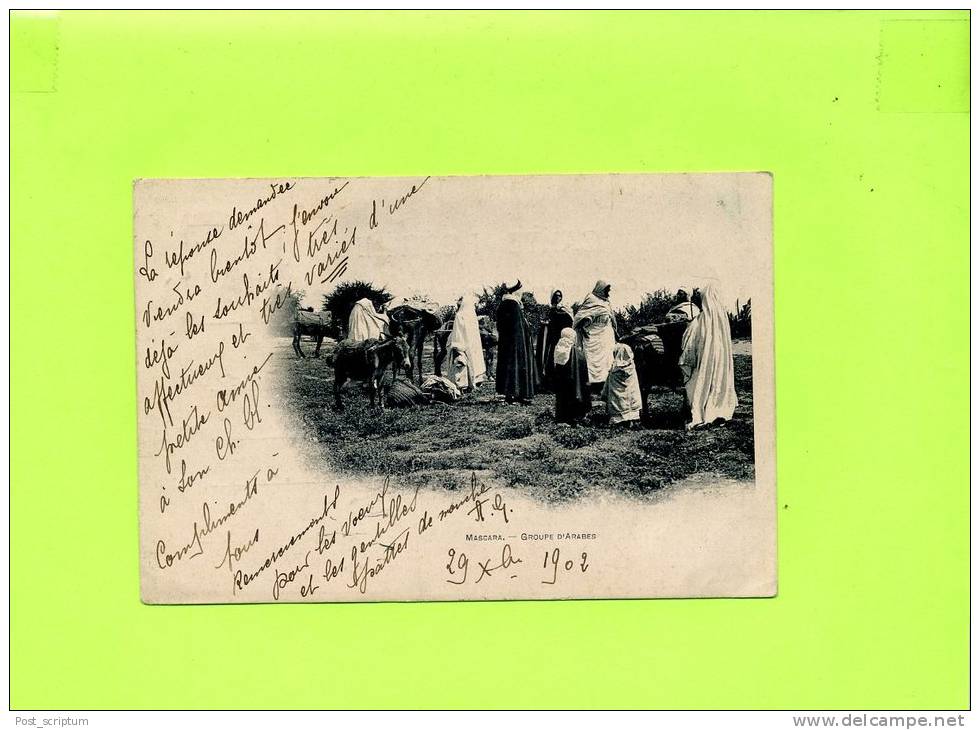 La réponse demandée
viendra bientôt, j'envoie
déjà les souhaits très
affectueux et très variés d'une
petite amie
à son Ch. H.
Compliments à
tous
Remerciements
pour les voeux
et les gentilles
pattes de mouche
A. G.
MASCARA. — GROUPE D'ARABES
29 Xbre 1902
Post_scriptum
www.delcampe.net